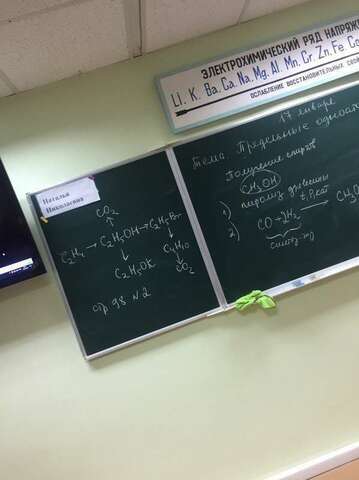 ЭЛЕКТРОХИМИЧЕСКИЙ РЯД НАПРЯЖ
Li, K, Ba, Ca, Na, Mg, Al, Mn, Cr, Zn, Fe, Co
ОСЛАБЛЕНИЕ ВОССТАНОВИТЕЛЬНЫХ СВОЙ
Наталья
Николаевна
CO₂
↑
C₂H₄ → C₂H₅OH → C₂H₅Br
↓ ↓
C₂H₅OK C₄H₁₀
↓
CO₂
стр. 98 №2
17 января
Тема. Предельные одноат
Получение спиртов
CH₃OH
1) пиролиз древесины
2) CO + 2H₂ t, P, cat → CH₃O
синтез-газ